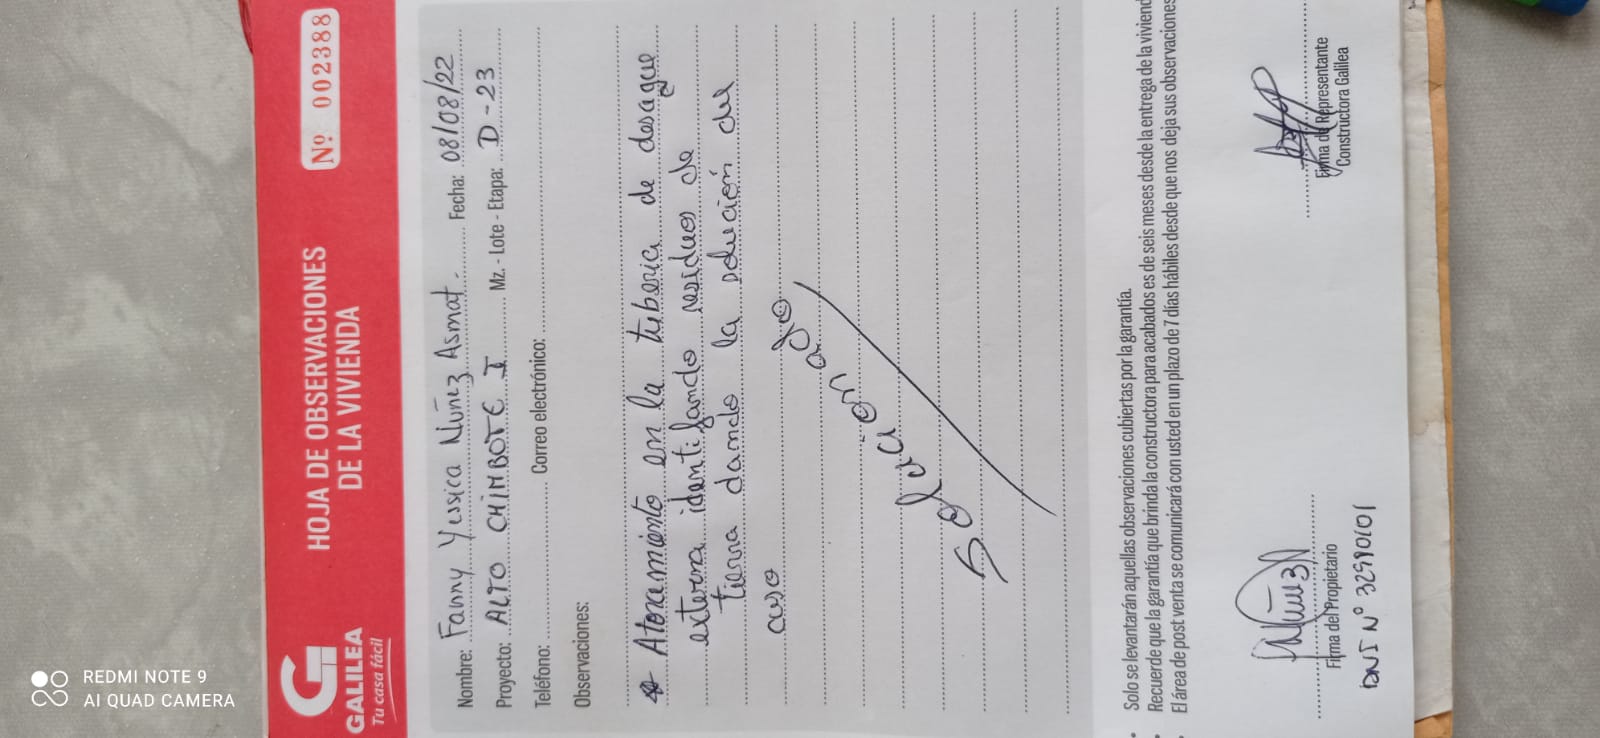 GALILEA
Tu casa fácil
HOJA DE OBSERVACIONES
DE LA VIVIENDA
Nº 002388
Nombre: Fanny Yessica Nuñez Asmat. Fecha: 08/08/22
Proyecto: ALTO CHIMBOTE I Mz. - Lote - Etapa: D - 23
Teléfono: Correo electrónico:
Observaciones:
Atoramiento en la tuberia de desague
externa identifando residuos de
tierra dando la solución del
caso
Solucionado
• Solo se levantarán aquellas observaciones cubiertas por la garantía.
• Recuerde que la garantía que brinda la constructora para acabados es de seis meses desde la entrega de la viviend
• El área de post venta se comunicará con usted en un plazo de 7 días hábiles desde que nos deja sus observaciones
Firma del Propietario
DNI Nº 32990101
Firma de Representante
Constructora Galilea
REDMI NOTE 9
AI QUAD CAMERA